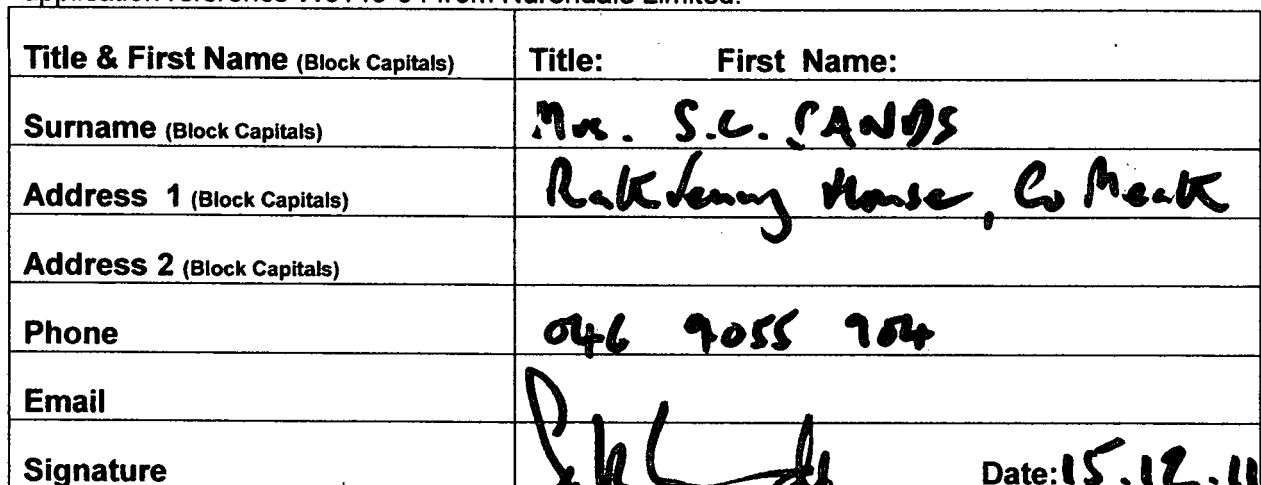 Title & First Name (Block Capitals) Title: First Name:
Surname (Block Capitals) Mrs. S.C. SANDS
Address 1 (Block Capitals) House, Co Meath
Address 2 (Block Capitals)
Phone 046 9055 904
Email
Signature Date: 15.12.11